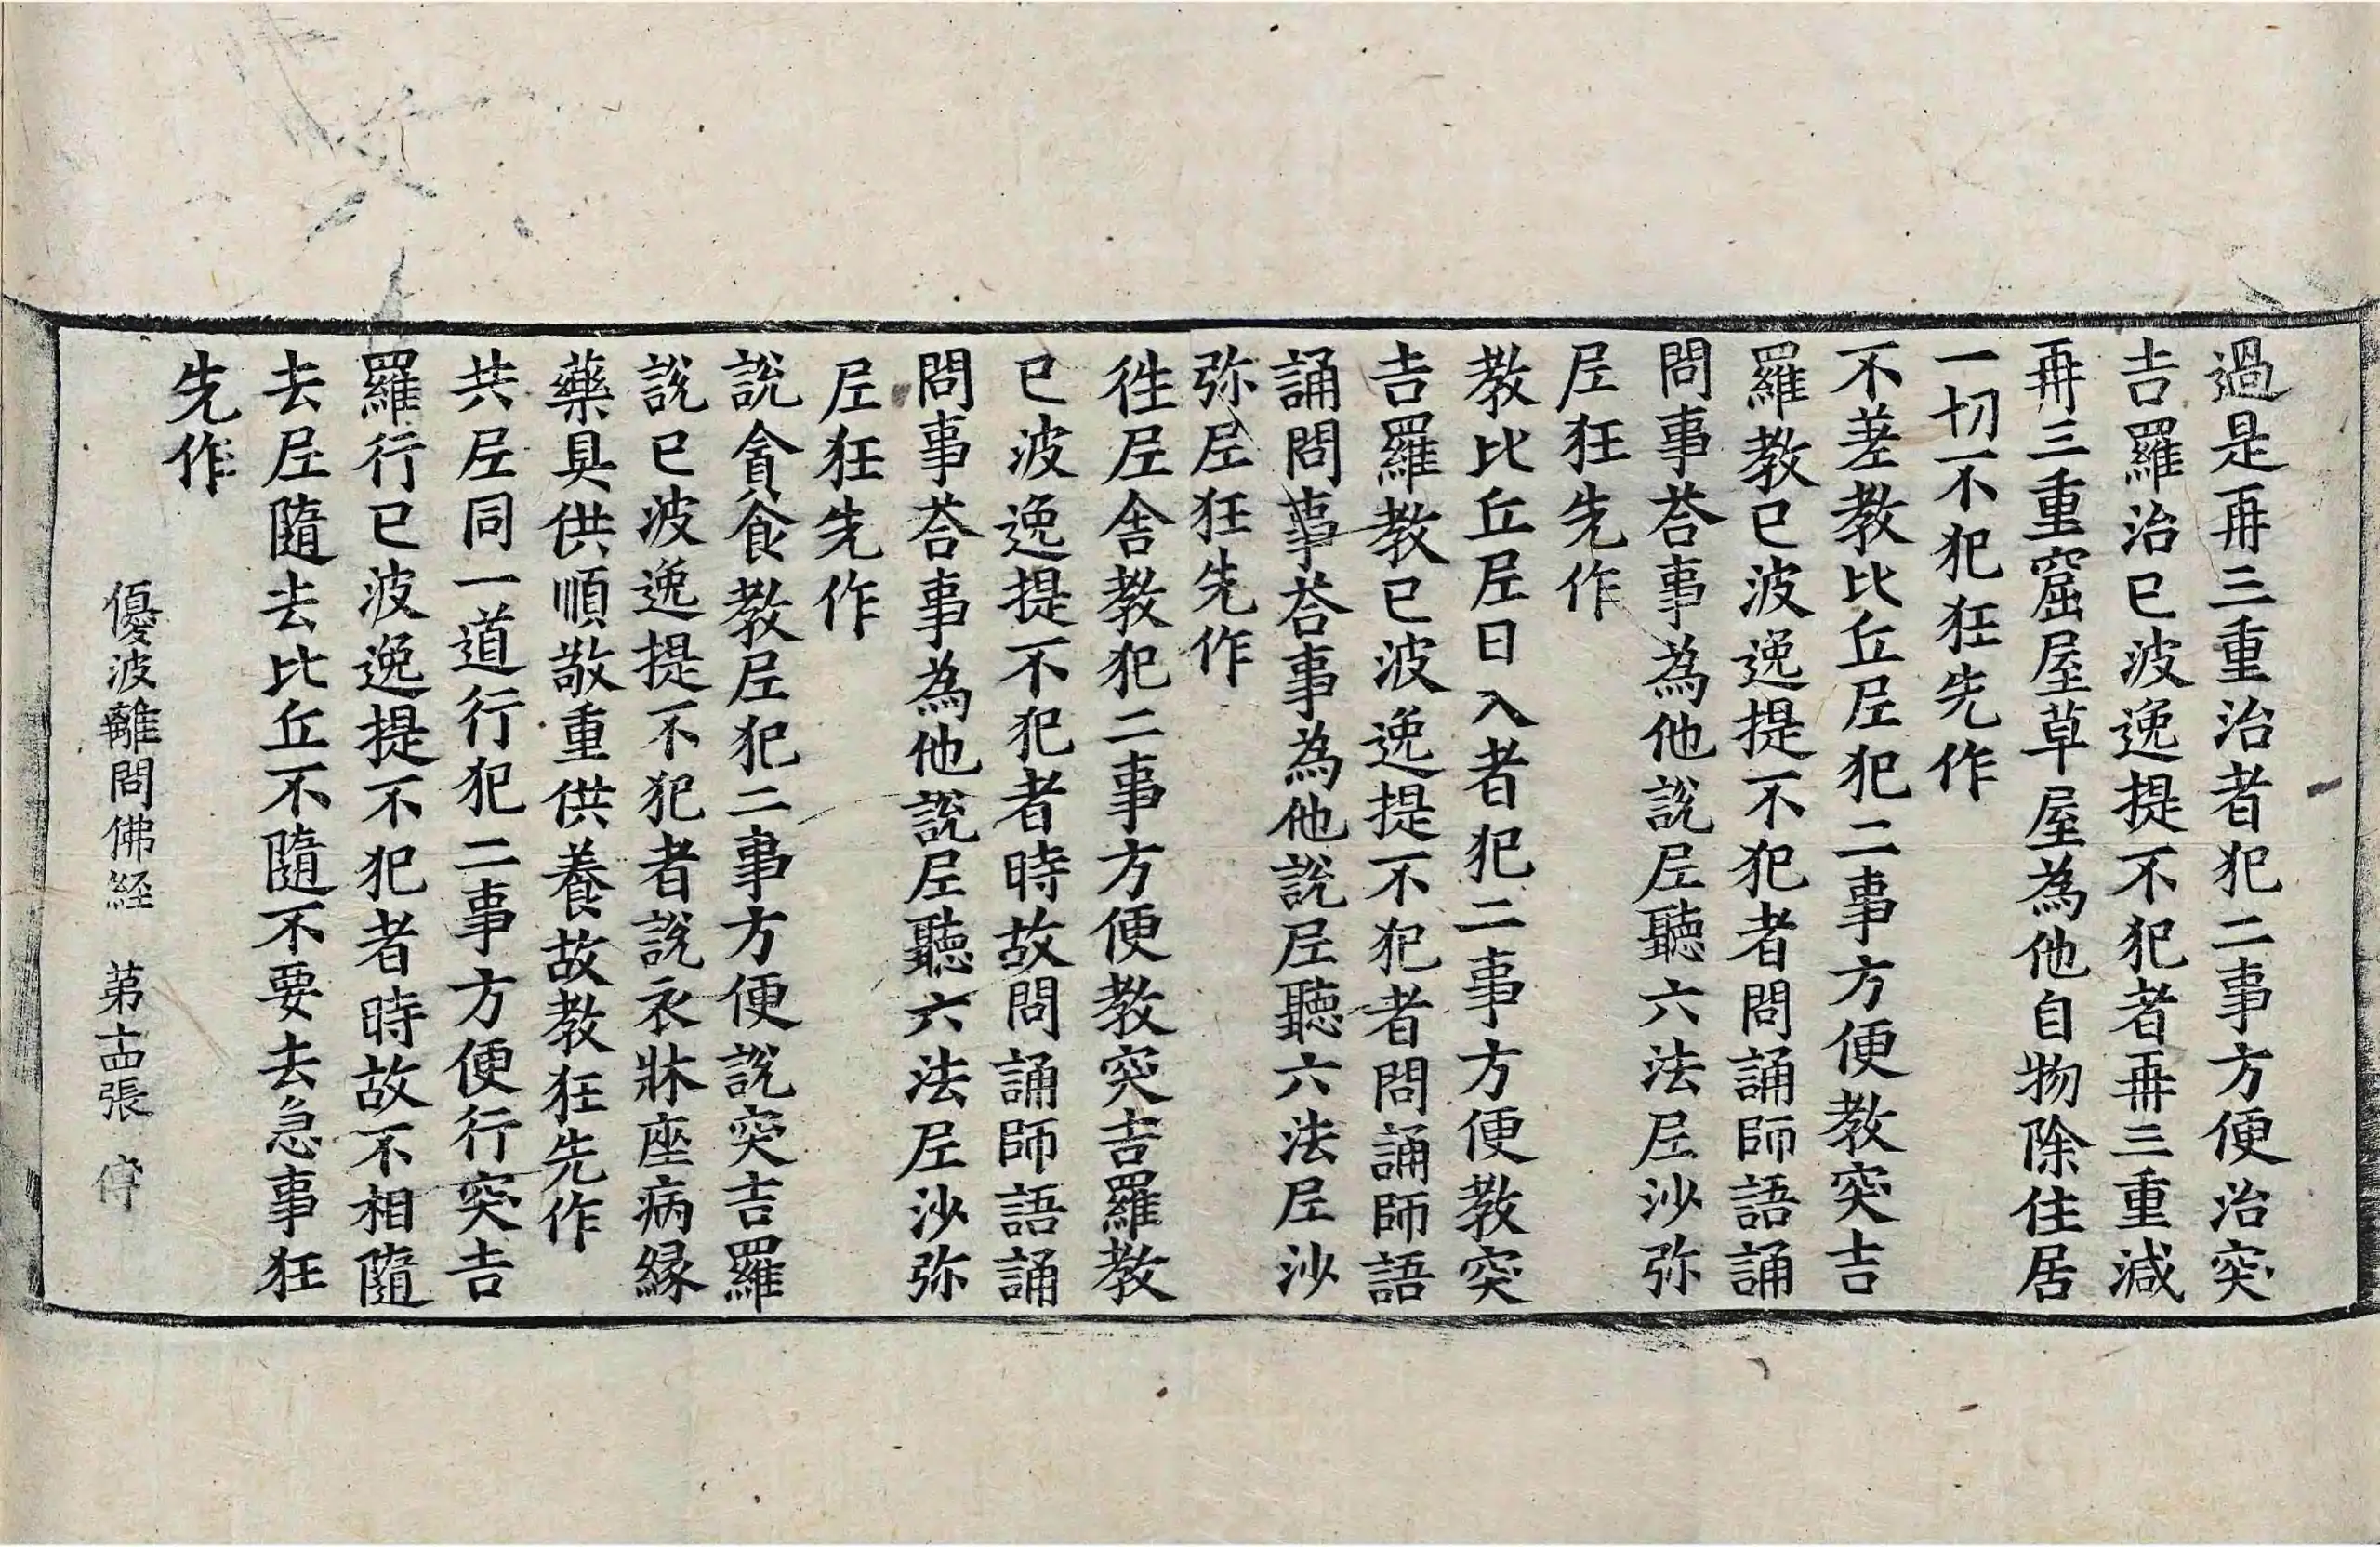 過是再三重治者犯二事方便治突
吉羅治已波逸提不犯者再三重減
再三重窟屋草屋為他自物除住居
一切不犯狂先作
不差教比丘𡰱犯二事方便教突吉
羅教已波逸提不犯者問誦師語誦
問事荅事為他說𡰱聽六法𡰱沙弥
𡰱狂先作
教比丘𡰱日入者犯二事方便教突
吉羅教已波逸提不犯者問誦師語
誦問事荅事為他說𡰱聽六法𡰱沙
弥𡰱狂先作
徃𡰱舍教犯二事方便教突吉羅教
已波逸提不犯者時故問誦師語誦
問事荅事為他說𡰱聽六法𡰱沙弥
𡰱狂先作
說貪食教𡰱犯二事方便說突吉羅
說已波逸提不犯者說衣牀座病緣
藥具供順敬重供養故教狂先作
共𡰱同一道行犯二事方便行突吉
羅行已波逸提不犯者時故不相隨
去𡰱隨去比丘不隨不要去急事狂
先作
優波離問佛経 苐十四張 傅